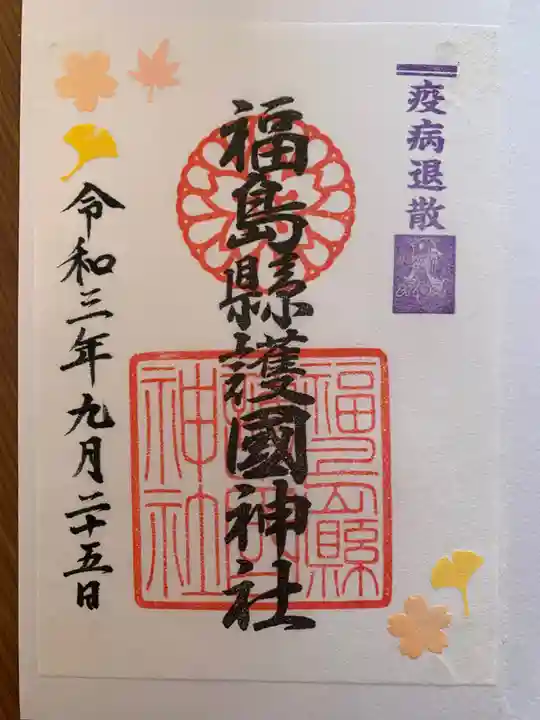 疫病退散
福島縣護國神社
福島縣
護國
神社
令和三年九月二十五日